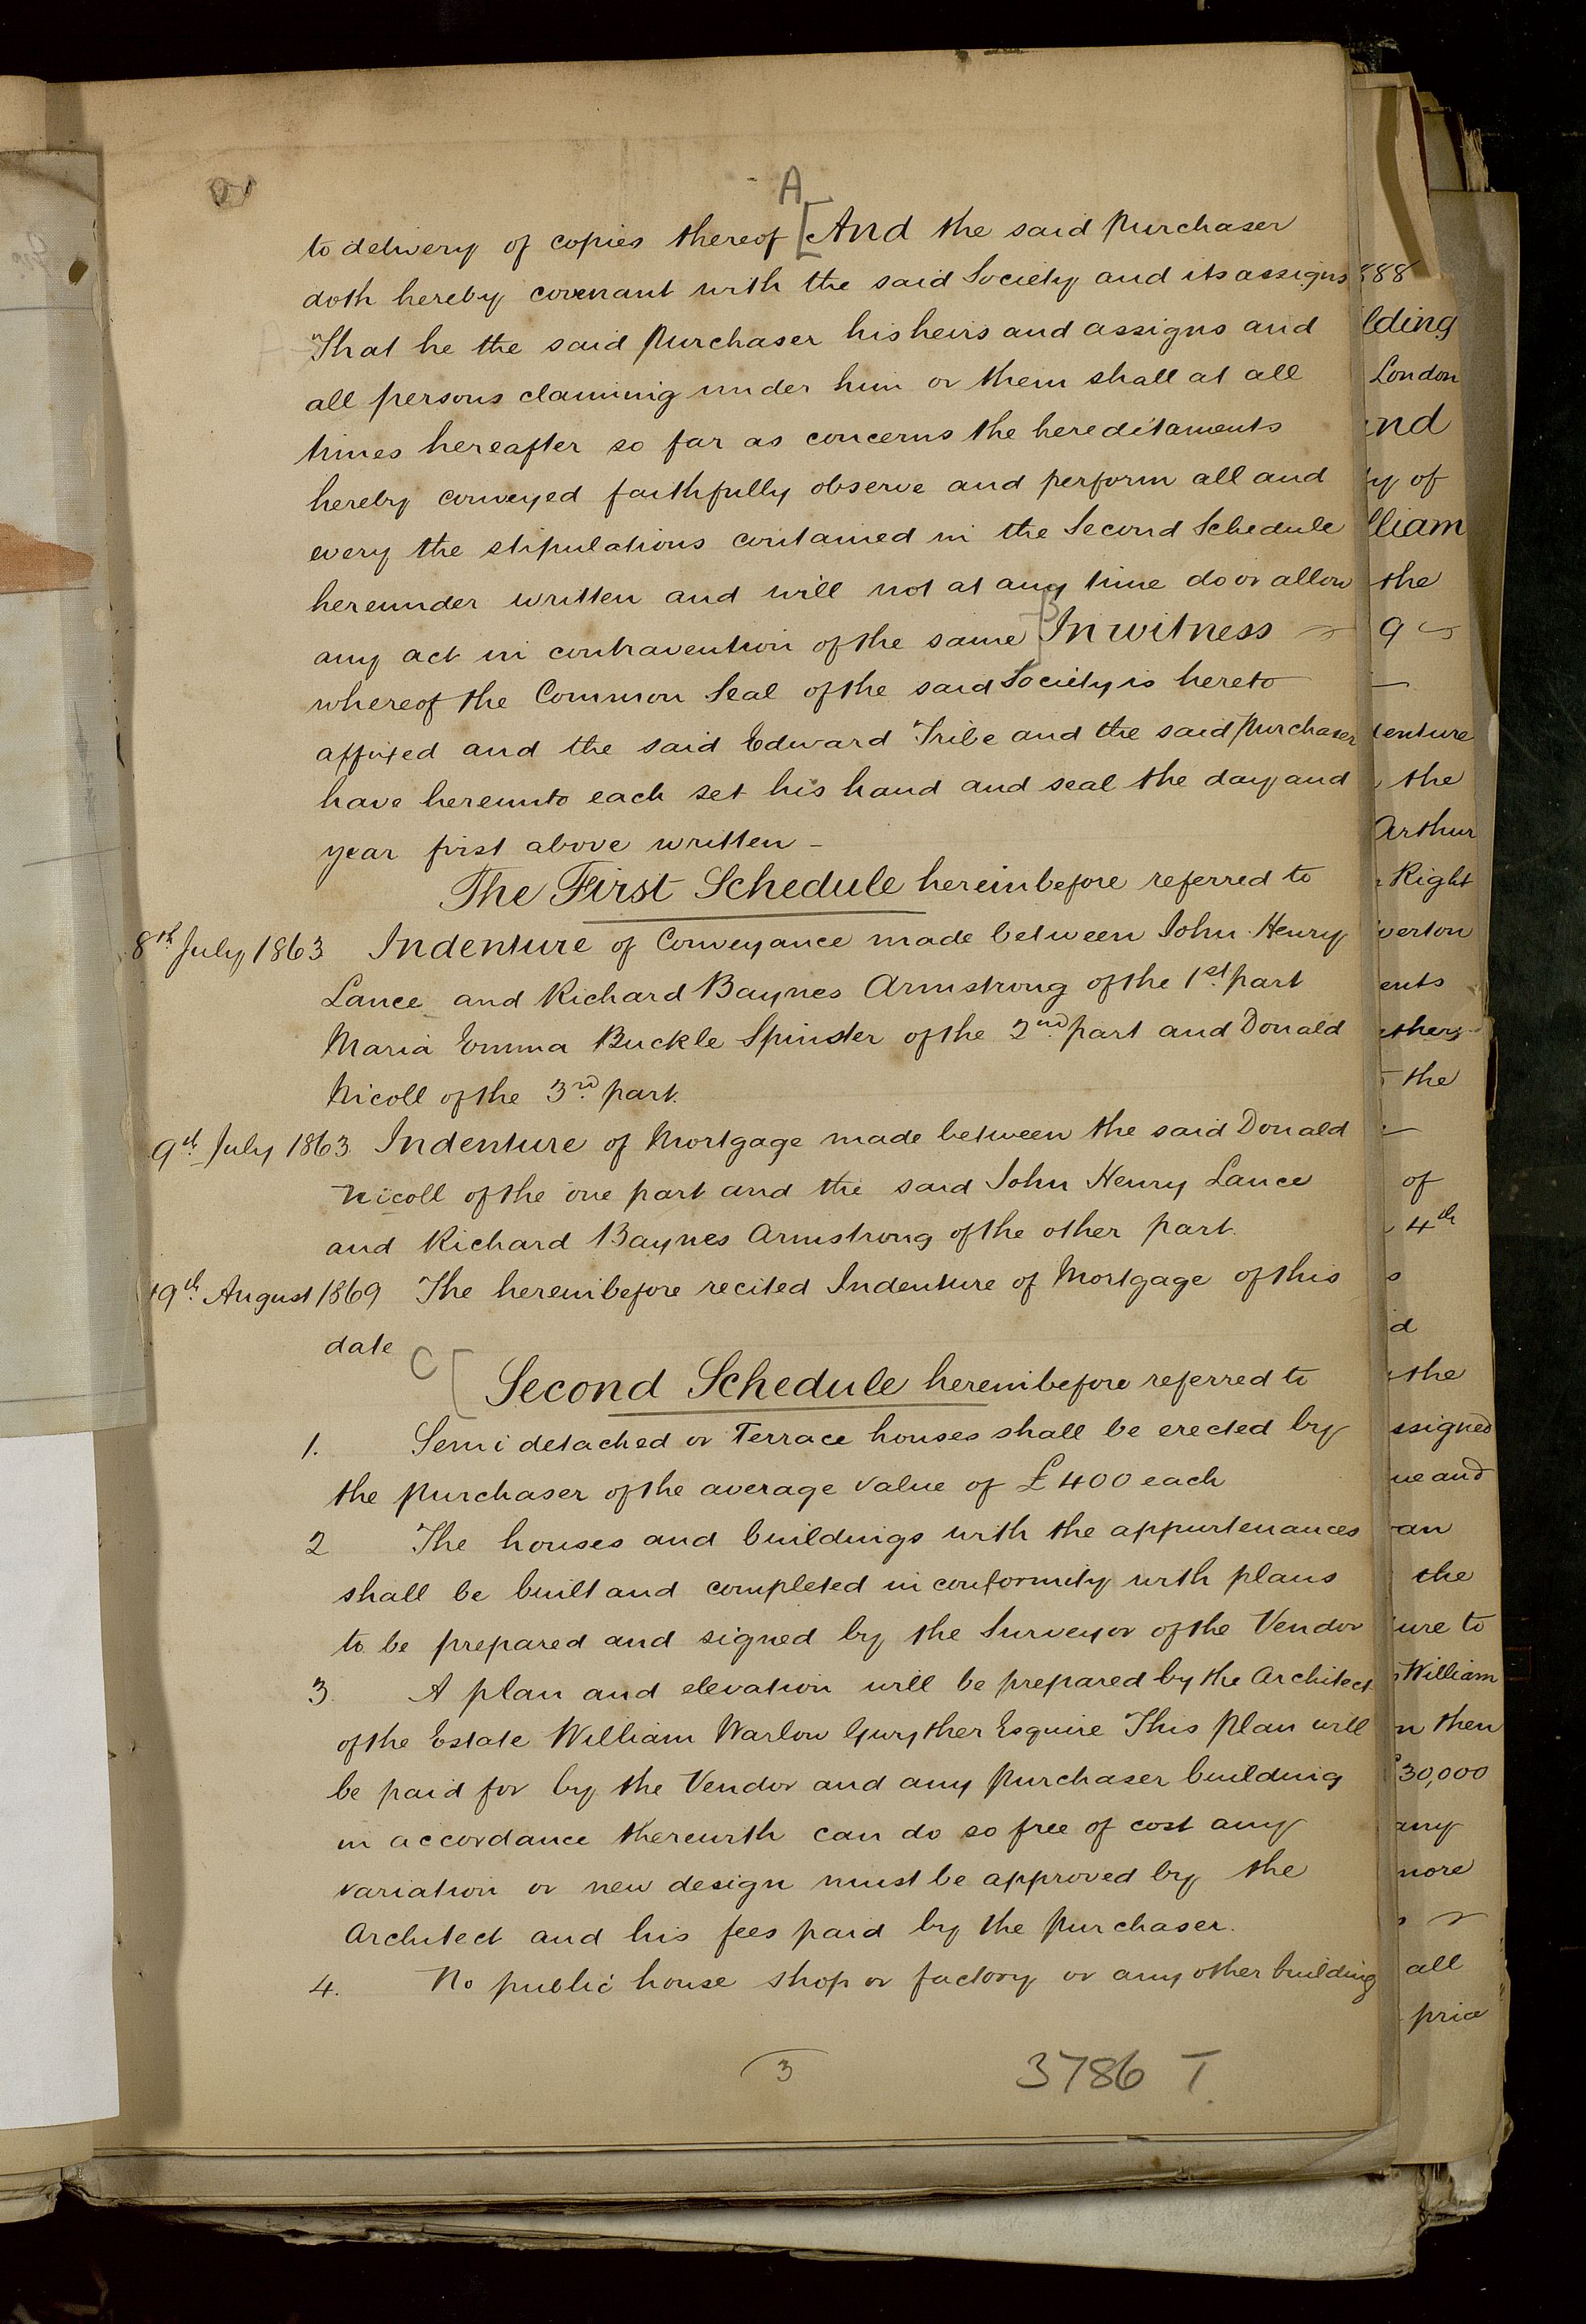 A
to delivery of copies thereof [And the said Purchaser
doth hereby covenant with the said Society and its assigns
That he the said Purchaser his heirs and assigns and
all persons claiming under him or them shall at all
times hereafter so far as concerns the hereditaments
hereby conveyed faithfully observe and perform all and
every the stipulations contained in the Second Schedule
hereunder written and will not at any time do or allow
any act in contravention of the same] In witness
whereof the Common Seal of the said Society is hereto
affixed and the said Edward Tribe and the said Purchaser
have hereunto each set his hand and seal the day and
year first above written -
The First Schedule hereinbefore referred to
8th July 1863 Indenture of Conveyance made between John Henry
Lance and Richard Baynes Armstrong of the 1st part
Maria Emma Buckle Spinster of the 2nd part and Donald
Nicoll of the 3rd part.
9th July 1863 Indenture of Mortgage made between the said Donald
Nicoll of the one part and the said John Henry Lance
and Richard Baynes Armstrong of the other part.
19th August 1869 The hereinbefore recited Indenture of Mortgage of this
date
C [Second Schedule hereinbefore referred to
1. Semi detached or Terrace houses shall be erected by
the purchaser of the average value of £400 each
2 The houses and buildings with the appurtenances
shall be built and completed in conformity with plans
to be prepared and signed by the Surveyor of the Vendor
3. A plan and elevation will be prepared by the Architect
of the Estate William Warlow Gwyther Esquire This Plan will
be paid for by the Vendor and any Purchaser building
in accordance therewith can do so free of cost any
variation or new design must be approved by the
Architect and his fees paid by the Purchaser.
4. No public house shop or factory or any other building
3
3786 T
888
lding
London
nd
ty of
lliam
the
9
enture
the
Arthur
Right
verton
ents
others
the
of
4th
s
d
the
ssigned
ue and
an
the
ure to
William
n then
30,000
any
more
all
price